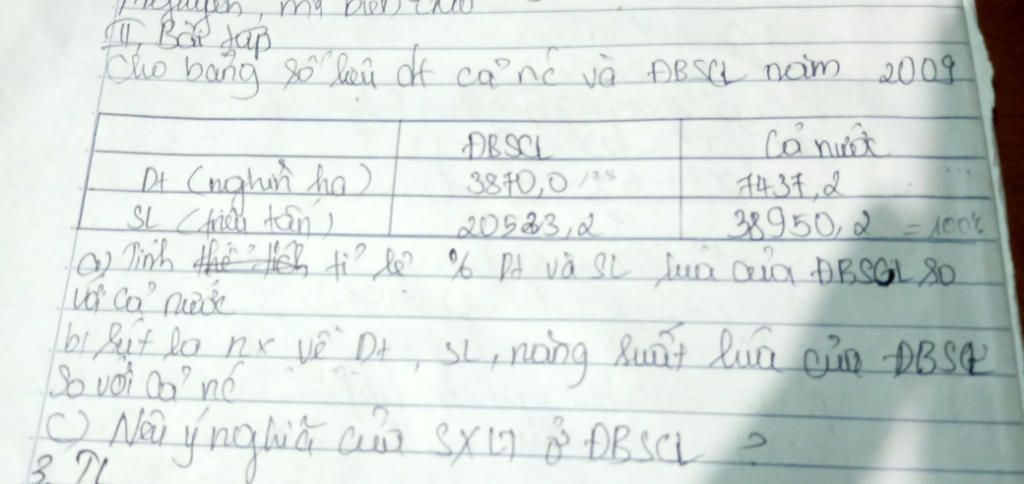 nguyên,
III, Bài tập
Cho bảng số liệu dt cả nc và ĐBSCL năm 2009
ĐBSCL Cả nước
Dt (nghìn ha) 3870,0 7437,2
SL (triệu tấn) 20523,2 38950,2 = 100%
a) Tính thể tích tỉ lệ % Dt và SL lúa của ĐBSCL so
với cả nước
b) Rút ra nx về Dt, SL, năng suất lúa của ĐBSCL
so với cả nc
c) Nêu ý nghĩa của SXLT ở ĐBSCL ?
3. TL